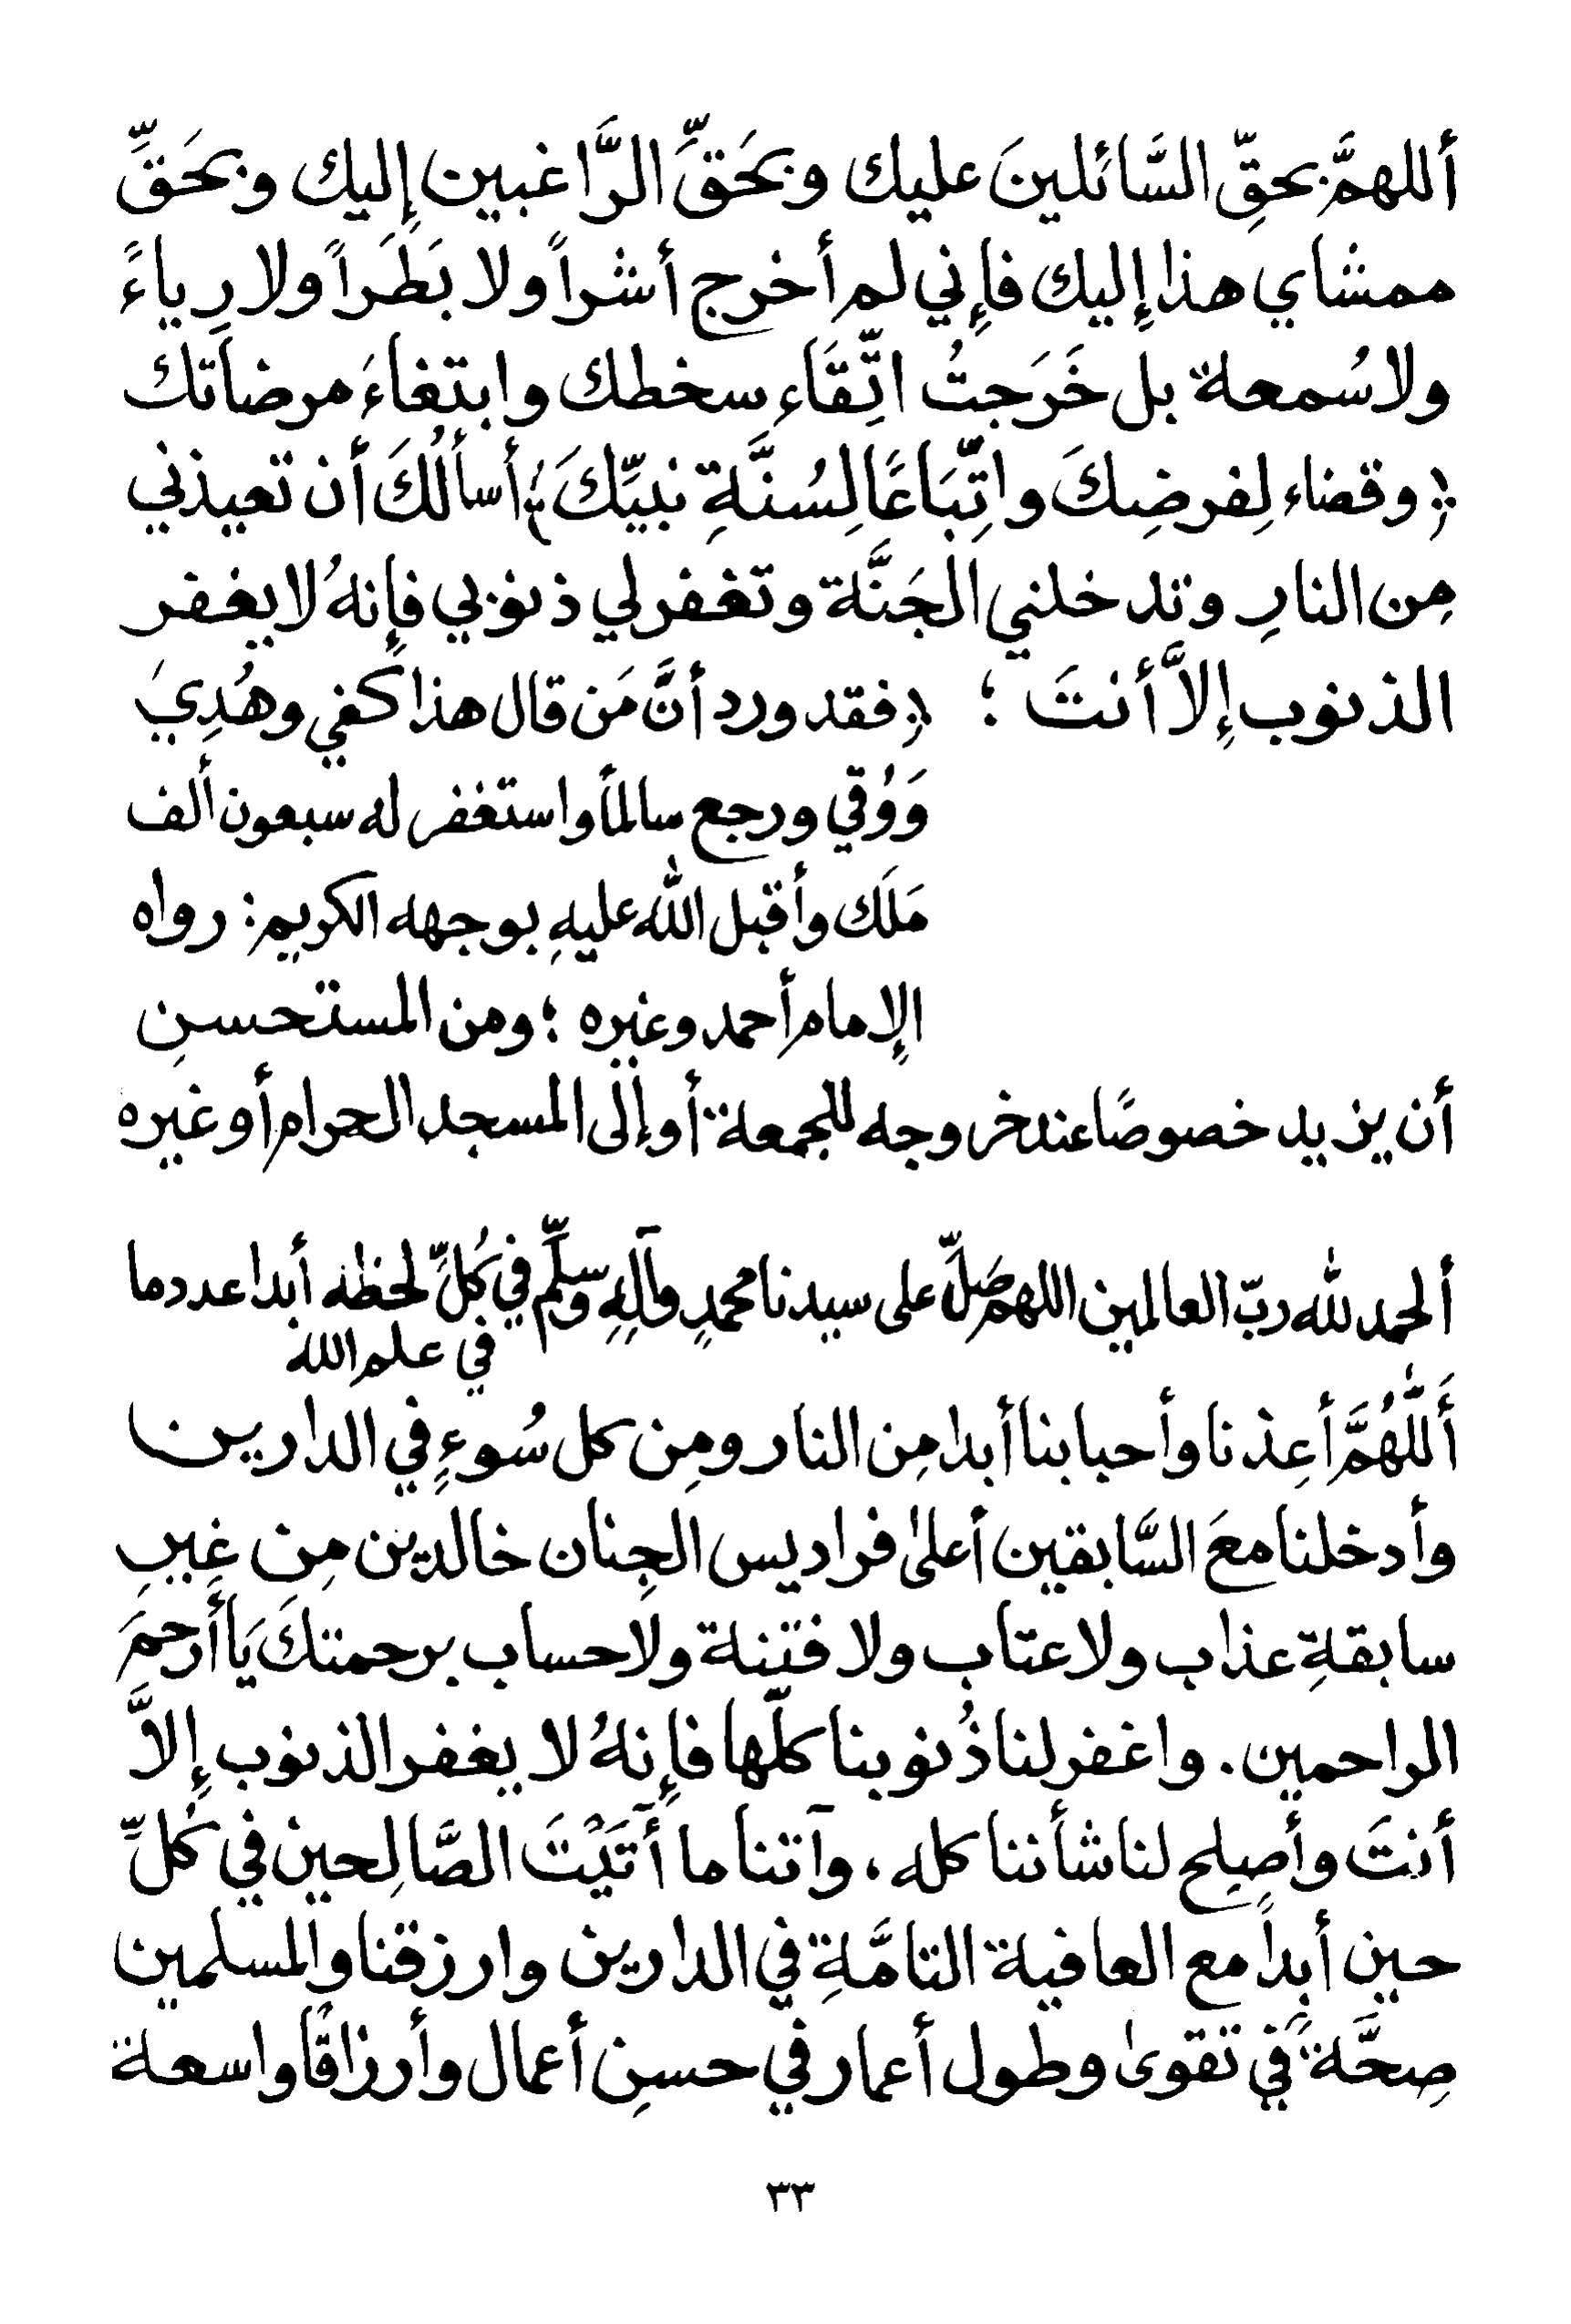 أللهمَّ بحقِّ السَّائلينَ عليك وبحَقِّ الرَّاغبين إِليك وبحَقِّ
ممشاي هذا إِليك فإِني لم أخرج أشراً ولا بَطَراً ولا رِياءً
ولا سُمعة بل خَرَجتُ اتِّقَاءِ سخطك وابتغاءَ مرضاتك
﴿وقضاء لِفرضِكَ واتِّبَاعًا لِسُنَّةِ نبيِّكَ﴾ أسألُكَ أن تعيذني
مِن النارِ وتدخلني الجَنَّة وتغفر لي ذنوبي فإِنهُ لا يغفر
الذنوب إِلاَّ أنتَ ؛ ﴿فقد ورد أنَّ مَن قال هذا كفي وهُدِيَ
وَوُقي ورجع سالماً واستغفر له سبعون ألف
مَلَك وأقبل الله عليهِ بوجهه الكريم: رواه
الإِمام أحمد وغيره ؛ ومن المستحسنِ
أن يزيد خصوصًا عند خروجه للجمعة أو إلى المسجد الحرام أو غيره
ألحمد لله ربّ العالمين اللهم صَلِّ على سيدنا محمدٍ وآلِهِ وسلِّم في كُلِّ لحظة أبدا عدد ما
في علم الله
أَللّٰهُمَّ أعِذنا وأحبابنا أبدا مِن النار ومِن كل سُوءٍ في الدارين
وأدخلنا معَ السَّابقين أعلىٰ فراديس الجِنان خالدين مِن غيرِ
سابقةِ عذاب ولا عتاب ولا فتنة ولا حساب برحمتكَ يَا أَرحمَ
الراحمين. واغفر لنا ذُنوبنا كلّها فإِنهُ لا يغفر الذنوب إِلاَّ
أنتَ وأصلِح لنا شأننا كله، وآتنا ما أَتَيْتَ الصَّالِحين في كُلِّ
حين أبداً مع العافية التامَّةِ في الدارين وارزقنا والمسلمين
صِحَّةً في تقوىٰ وطول أعمار في حسنِ أعمال وأرزاقًا واسعة
٣٣